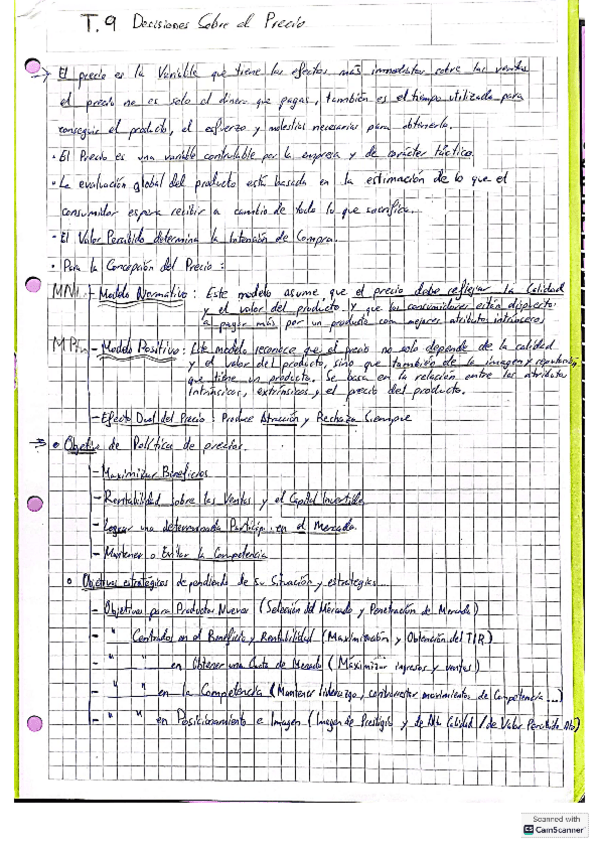 T.9 Decisiones Sobre el Precio
→ El precio es la Variable que tiene los efectos más inmediatos sobre las ventas
el precio no es solo el dinero que pagas, también es el tiempo utilizado para
conseguir el producto, el esfuerzo y molestias necesarias para obtenerlo.
· El Precio es una variable controlable por la empresa y de carácter táctico.
· La evaluación global del producto está basada en la estimación de lo que el
consumidor espera recibir a cambio de todo lo que sacrifica.
· El Valor Percibido determina la Intensión de Compra.
· Para la Concepción del Precio:
- Modelo Normativo: Este modelo asume que el precio debe reflejar la Calidad
y el valor del producto y que los consumidores están dispuestos
a pagar más por un producto con mejores atributos intrínsecos.
- Modelo Positivo: Este modelo reconoce que el precio no solo depende de la calidad
y el valor del producto, sino que también de la imagen y reputación
que tiene un producto. Se basa en la relación entre los atributos
intrínsicos, extrínsicos y el precio del producto.
- Efecto Dual del Precio: Produce Atracción y Rechazo Siempre
→ • Objetivo de Política de precios.
- Maximizar Beneficios
- Rentabilidad sobre las Ventas y el Capital Invertido
- Lograr una determinada Particip. en el Mercado.
- Mantener o Evitar la Competencia
• Objetivos estratégicos dependiendo de su Situación y estrategias...
- Objetivos para Productos Nuevos (Selección del Mercado y Penetración de Mercado)
- " Centrados en el Beneficio y Rentabilidad (Maximización y Obtención del TIR)
- " " en Obtener una Cuota de Mercado (Maximizar ingresos y ventas)
- " " en la Competencia (Mantener liderazgo, contrarrestar movimientos de Competencia...)
- " " en Posicionamiento e Imagen (Imagen de Prestigio y de Alta Calidad / de Valor Percibido Alto)
Scanned with
CamScanner